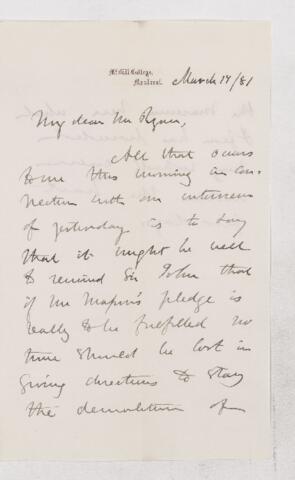 McGill College,
Montreal.
March 19/81
My dear Mr
All that occurs
to me this morning in con-
nection with our interview
of yesterday is to say
that it might be well
to remind Sir John that
if Mr pledge is
really to be fulfilled no
time should be lost in
giving directions to stay
the demolition of